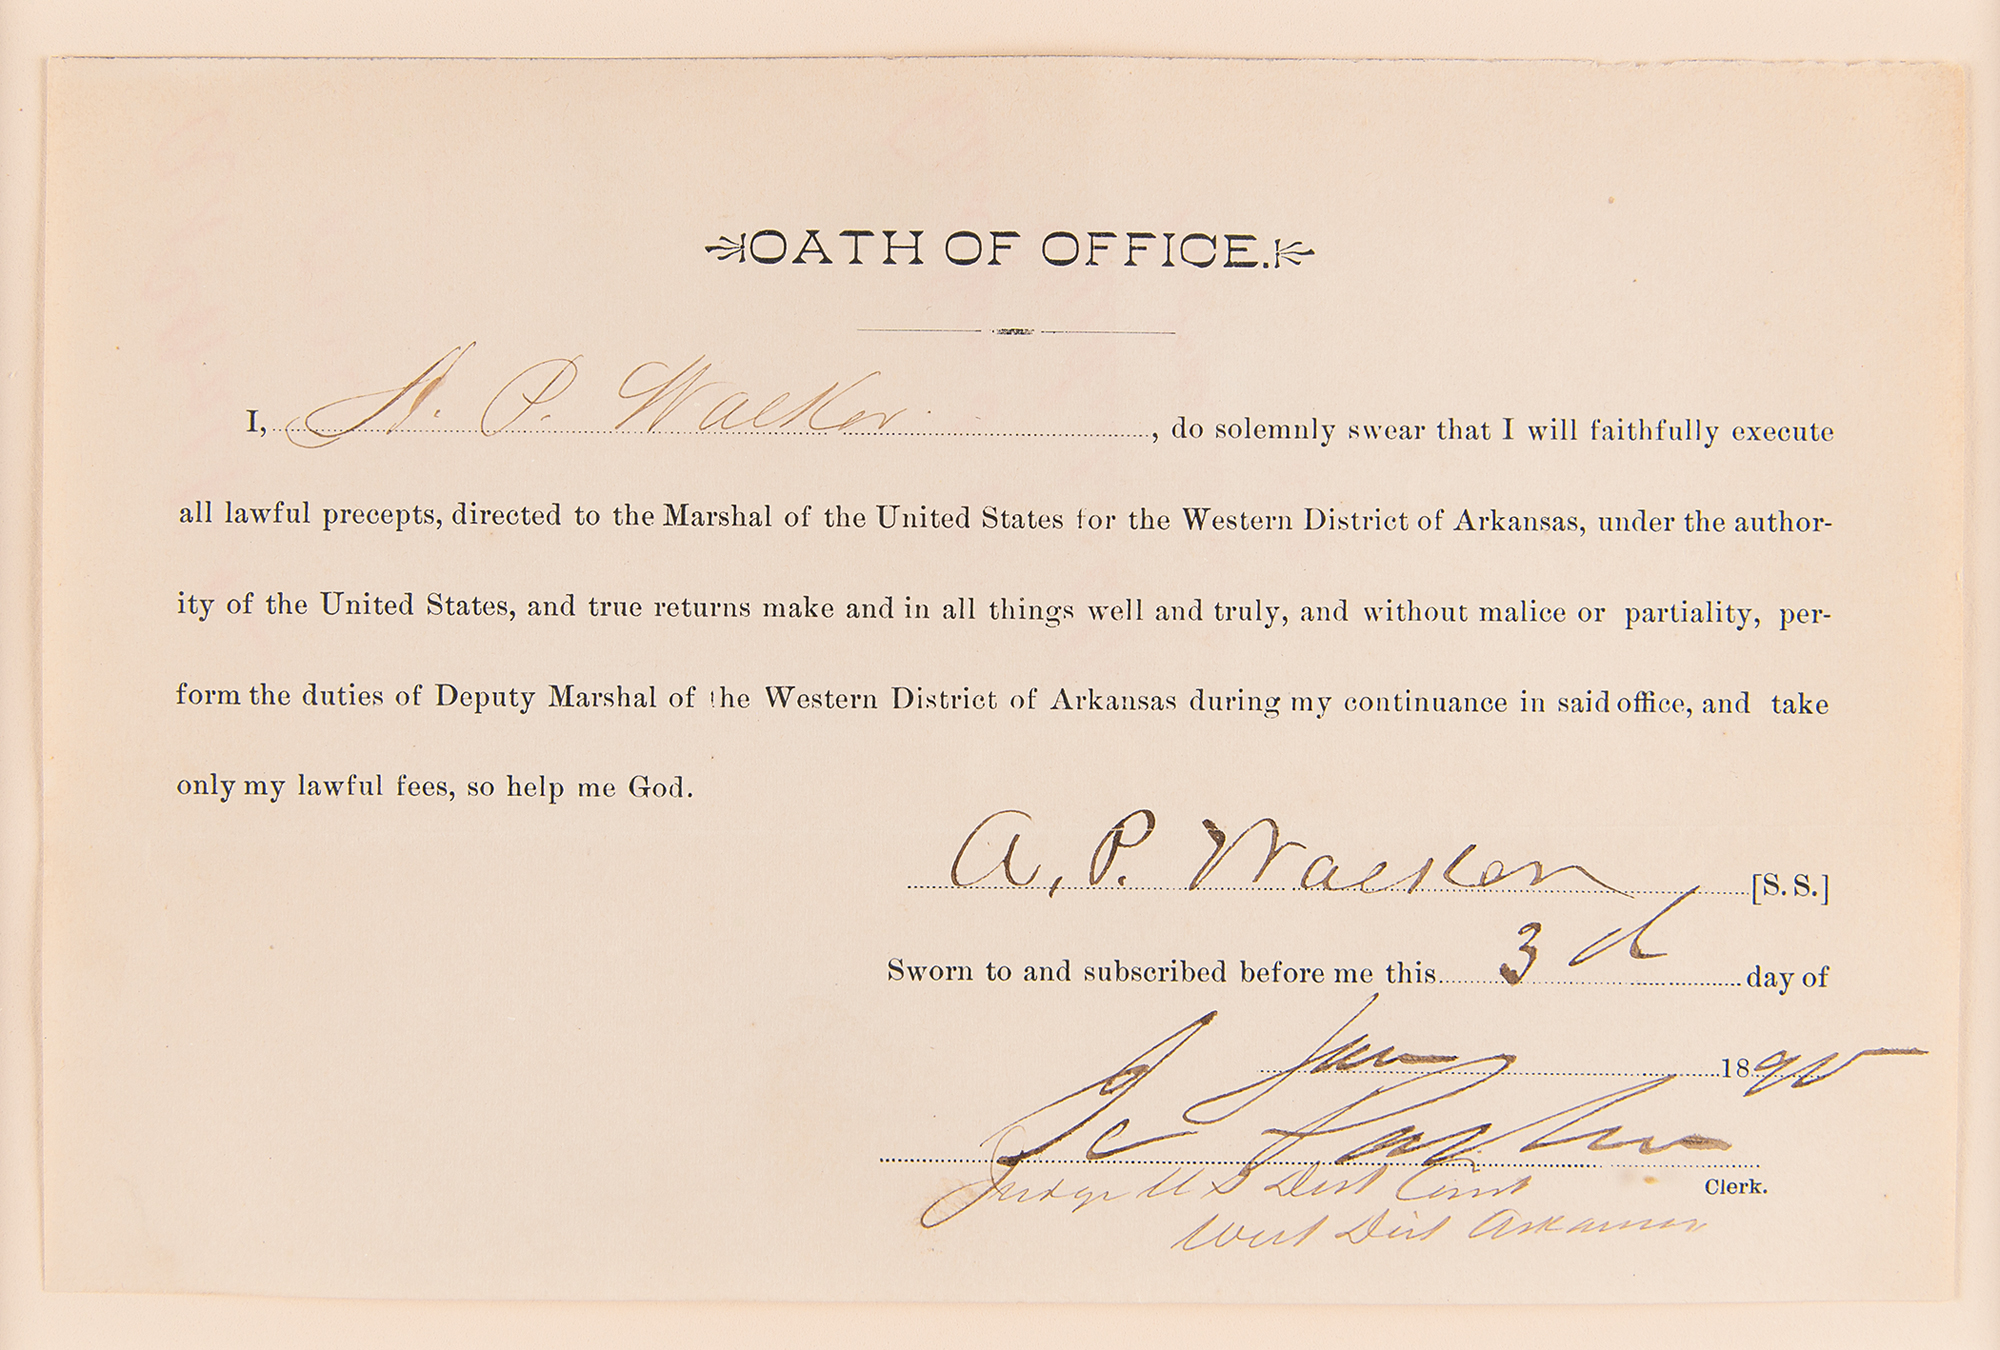 OATH OF OFFICE.
I, A. P. Walker, do solemnly swear that I will faithfully execute
all lawful precepts, directed to the Marshal of the United States for the Western District of Arkansas, under the author-
ity of the United States, and true returns make and in all things well and truly, and without malice or partiality, per-
form the duties of Deputy Marshal of the Western District of Arkansas during my continuance in said office, and take
only my lawful fees, so help me God.
A. P. Walker [S. S.]
Sworn to and subscribed before me this 3d day of
Jan 1890
I C Parker
Clerk.
Judge U S Dist Court
West Dist Arkansas